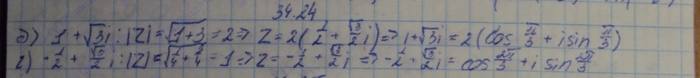 34.24
д) 1 + √3i : |Z| = √1+3 = 2 => Z = 2(1/2 + √3/2 i) => 1 + √3i = 2(cos π/3 + i sin π/3)
г) -1/2 + √3/2 i : |Z| = √1/4 + 3/4 = 1 => Z = -1/2 + √3/2 i => -1/2 + √3/2 i = cos 2π/3 + i sin 2π/3